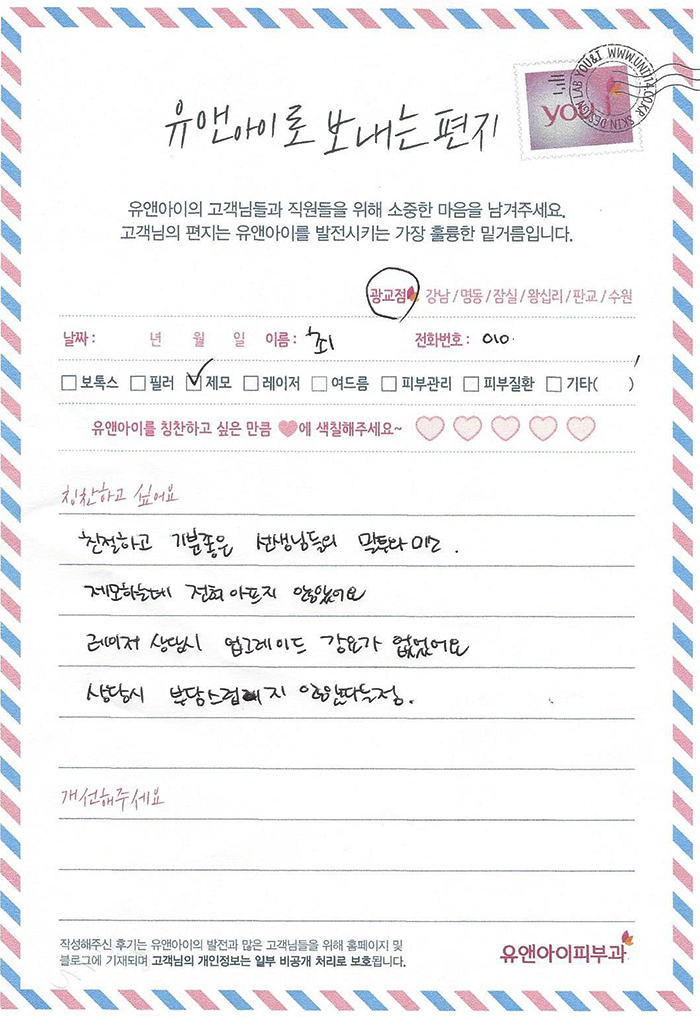 유앤아이로 보내는 편지
SKIN DESIGN LAB YOU&I WWW.UNI114.CO.KR
you
유앤아이의 고객님들과 직원들을 위해 소중한 마음을 남겨주세요.
고객님의 편지는 유앤아이를 발전시키는 가장 훌륭한 밑거름입니다.
광교점 강남 / 명동 / 잠실 / 왕십리 / 판교 / 수원
날짜 : 년 월 일 이름 : 최 전화번호 : 010
보톡스 필러 제모 레이저 여드름 피부관리 피부질환 기타( )
유앤아이를 칭찬하고 싶은 만큼 에 색칠해주세요~
칭찬하고 싶어요
친절하고 기분좋은 선생님들의 말투와 미소.
제모하는데 전혀 아프지 않았어요
레이저 상담시 업그레이드 강요가 없었어요
상담시 부담스럽지 않았다는점.
개선해주세요
작성해주신 후기는 유앤아이의 발전과 많은 고객님들을 위해 홈페이지 및
블로그에 기재되며 고객님의 개인정보는 일부 비공개 처리로 보호됩니다.
유앤아이피부과